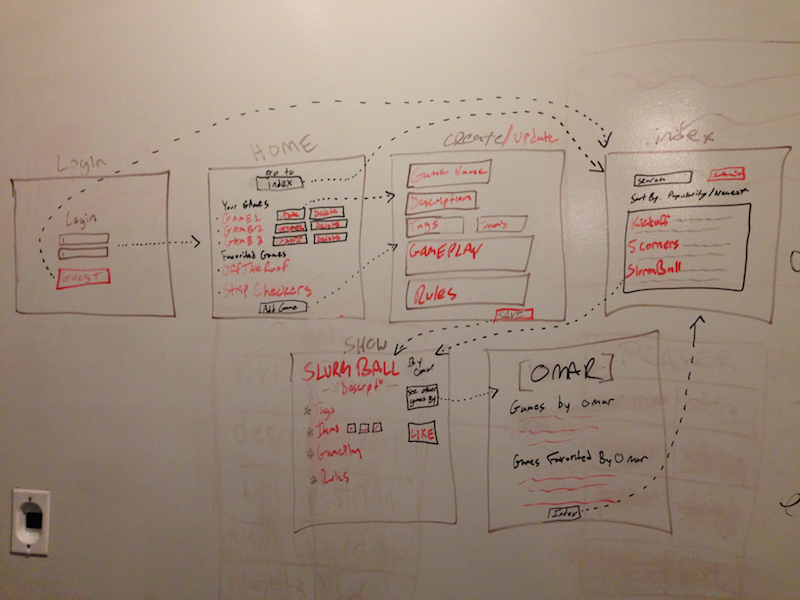 Login
Login
GUEST
HOME
Go to
index
Your Games
GAME 1 update Delete
GAME 2 update Delete
GAME 3 update Delete
Favorited Games
OffTheRoof
Strip Checkers
Add Game
Create/Update
Game Name
Description
Tags
GAMEPLAY
Rules
SAVE
index
Search
Sort By: Popularity/Newest
Kickoff
5 corners
SlurmBall
SHOW
SLURMBALL
By
Omar
Descript
* Tags
* Items
* Gameplay
* Rules
See other
games By
LIKE
OMAR
Games by Omar
Games Favorited By Omar
Index